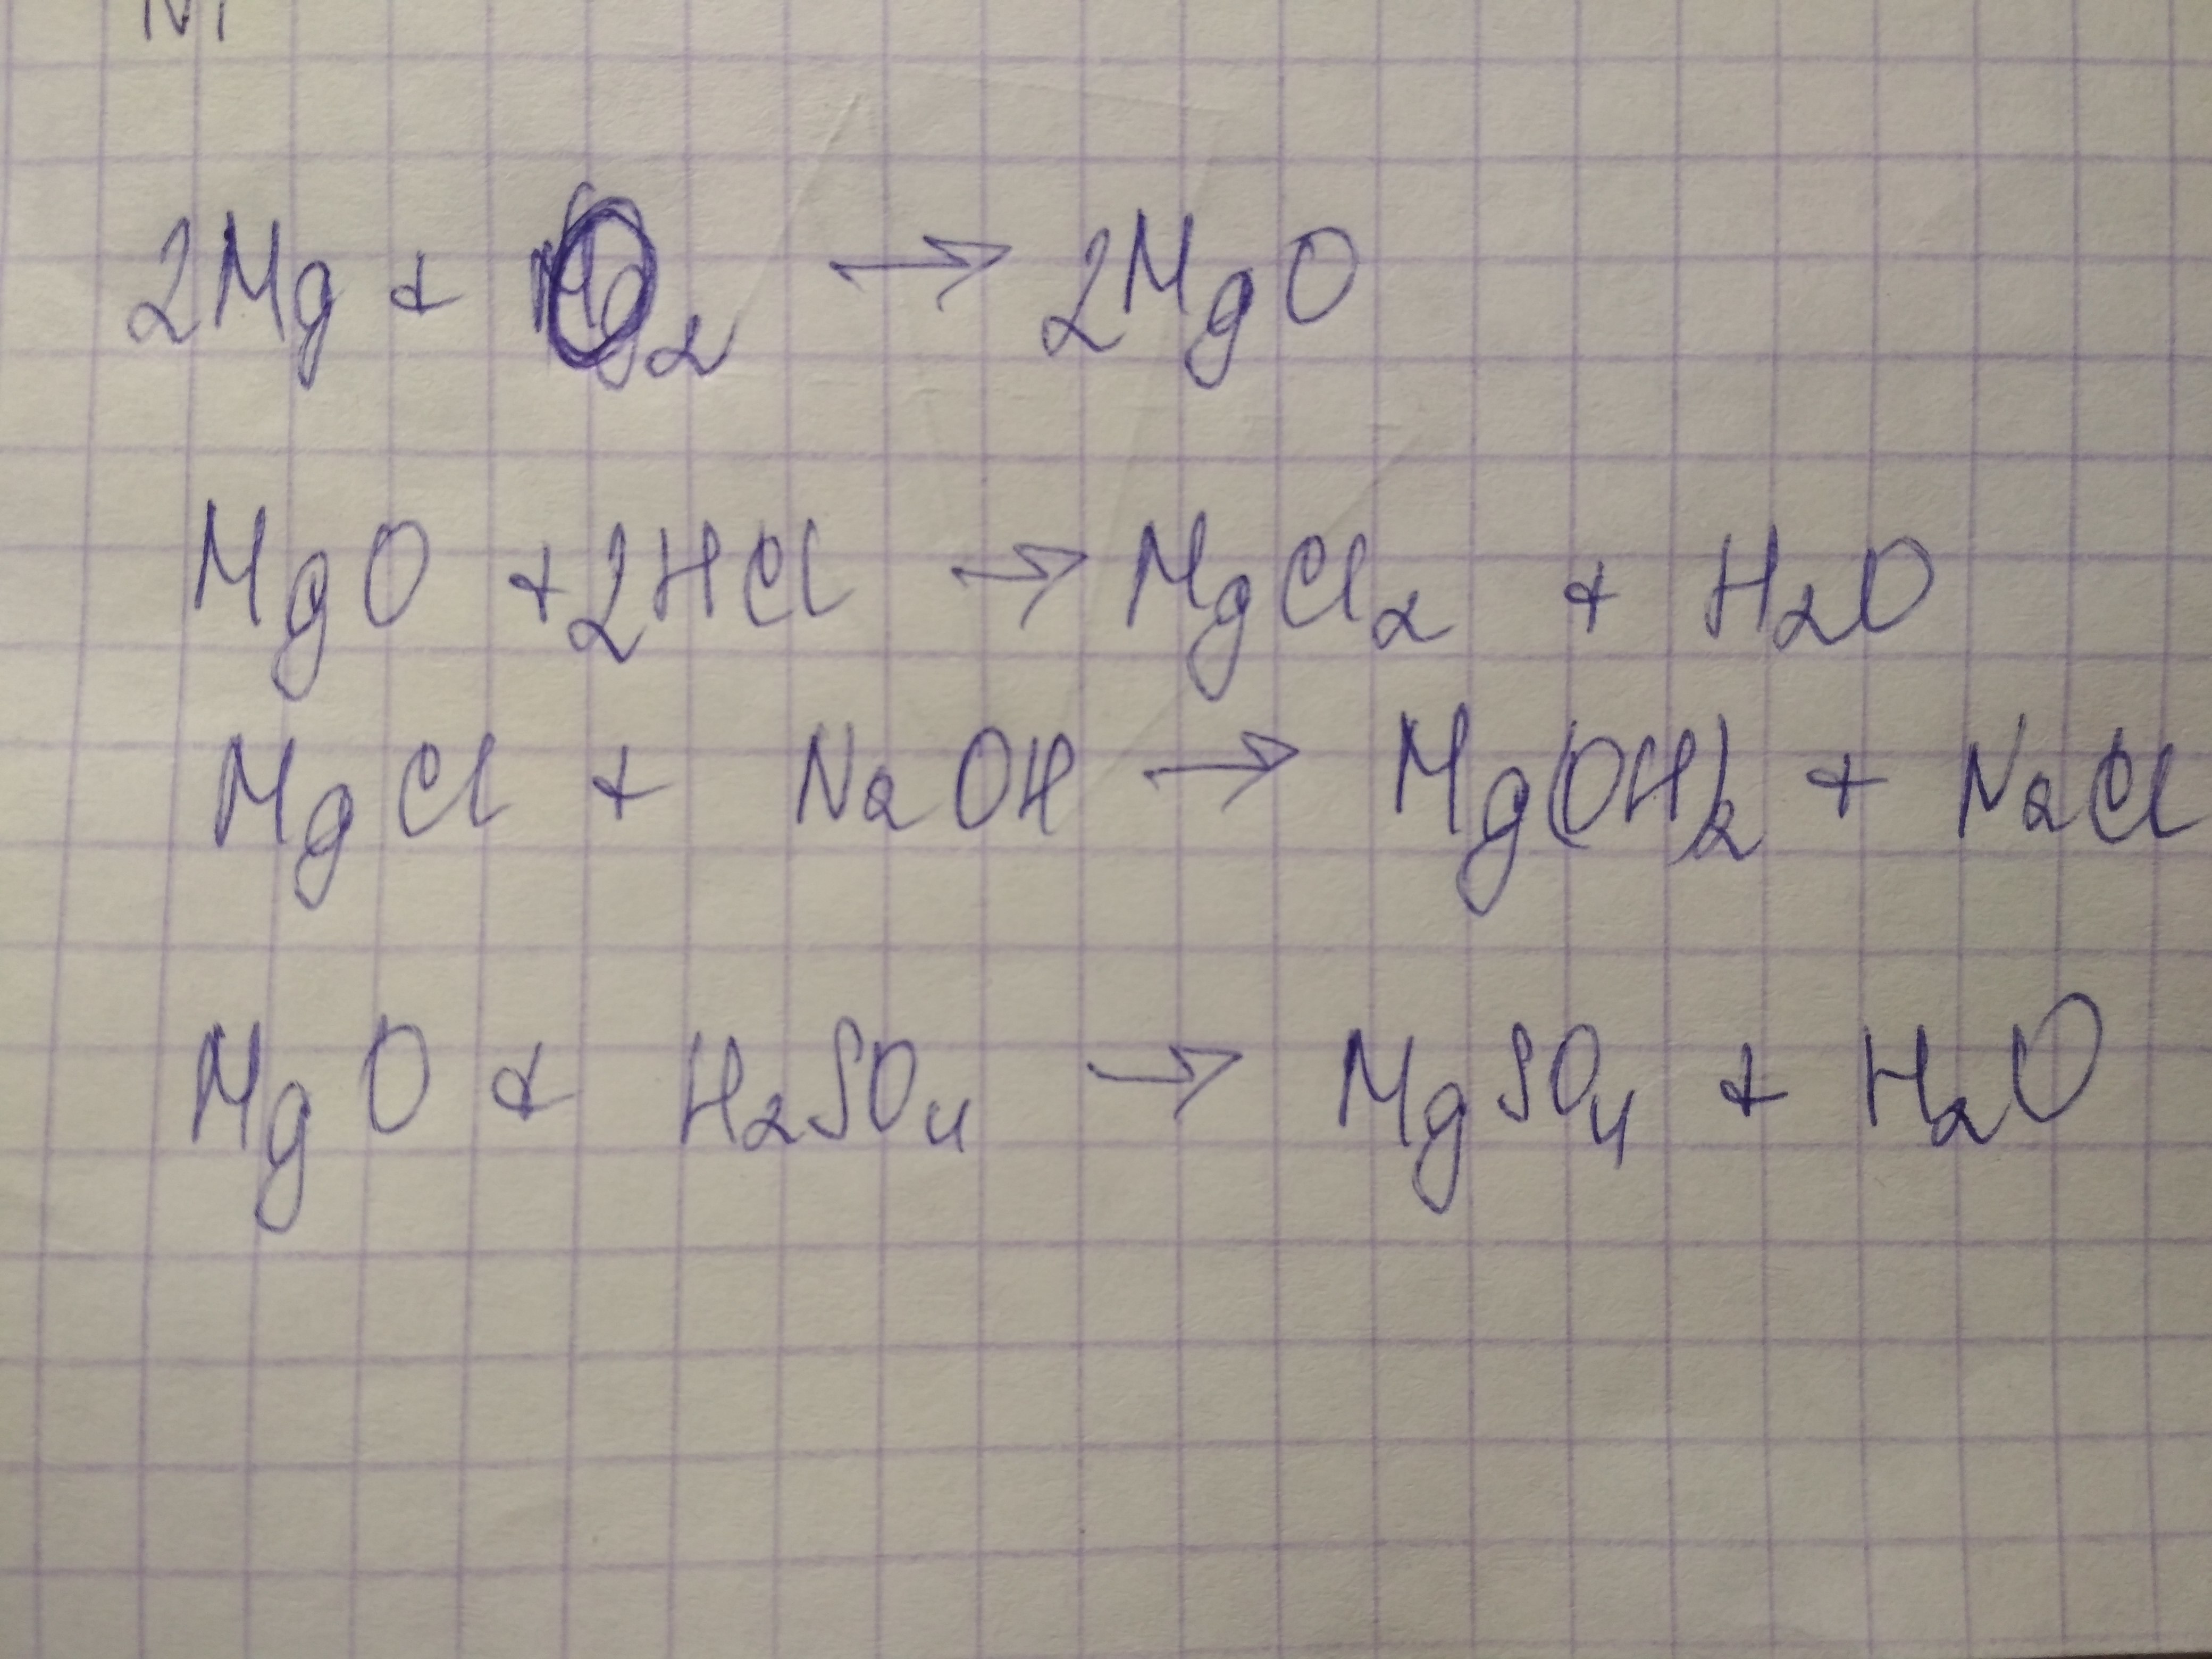 2Mg + O₂ → 2MgO
MgO + 2HCl → MgCl₂ + H₂O
MgCl + NaOH → Mg(OH)₂ + NaCl
MgO + H₂SO₄ → MgSO₄ + H₂O